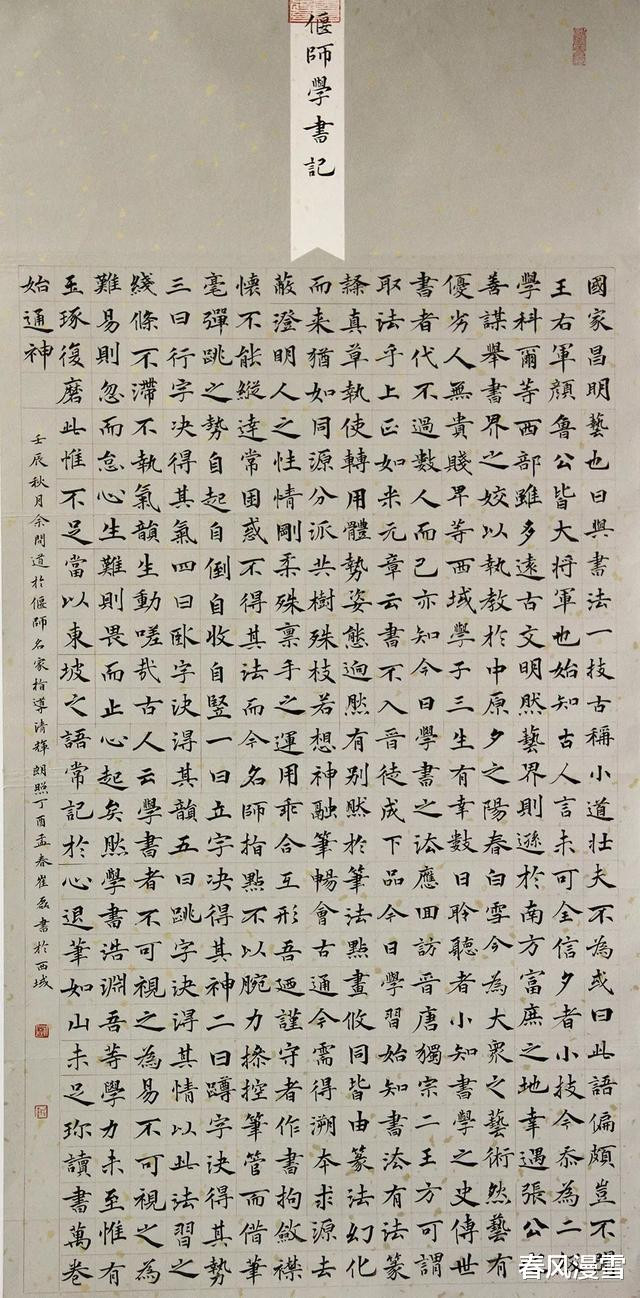 偃師學書記
國家昌明藝也日興書法一技古稱小道壯夫不為或曰此語偏頗豈不聞
王右軍顏魯公皆大将軍也始知古人言未可全信夕者小技今忝為二級
學科爾等西部雖多遠古文明然藝界則遜於南方富庶之地幸遇張公
善謀舉書界之姣以執教於中原夕之陽春白雪今為大衆之藝術然藝有
優劣人無貴賤早等西域學子三生有幸數日聆聽者小知書學之史傳世
書者代不過數人而已亦知今日學書之法應回訪晉唐獨宗二王方可謂
取法乎上正如米元章云書不入晉徒成下品今日學習始知書法有法篆
隸真草執使轉用體勢姿態迥然有别然於筆法點畫攸同皆由篆法幻化
而来猶如同源分派共樹殊枝若想神融筆暢會古通今需得溯本求源去
蔽澄明人之性情剛柔殊禀手之運用乖合互形吾廼謹守者作書拘斂襟
懷不能縱達常困惑不得其法而今名師指點不以腕力搽控筆管而借筆
毫彈跳之勢自起自倒自收自竪一曰立字决得其神二曰蹲字訣得其勢
三曰行字决得其氣四曰卧字决得其韻五曰跳字訣得其情以此法習之
綫條不滯不執氣韻生動嗟哉古人云學書者不可視之為易不可視之為
難易則忽而怠心生難則畏而止心起矣然學書浩淵吾等學力未至惟有
玉琢復磨此惟不足當以東坡之語常記於心退筆如山未足珎讀書萬卷
始通神
壬辰秋月余問道於偃師名家指導清輝朗照丁酉孟春崔磊書於西域
春风漫雪